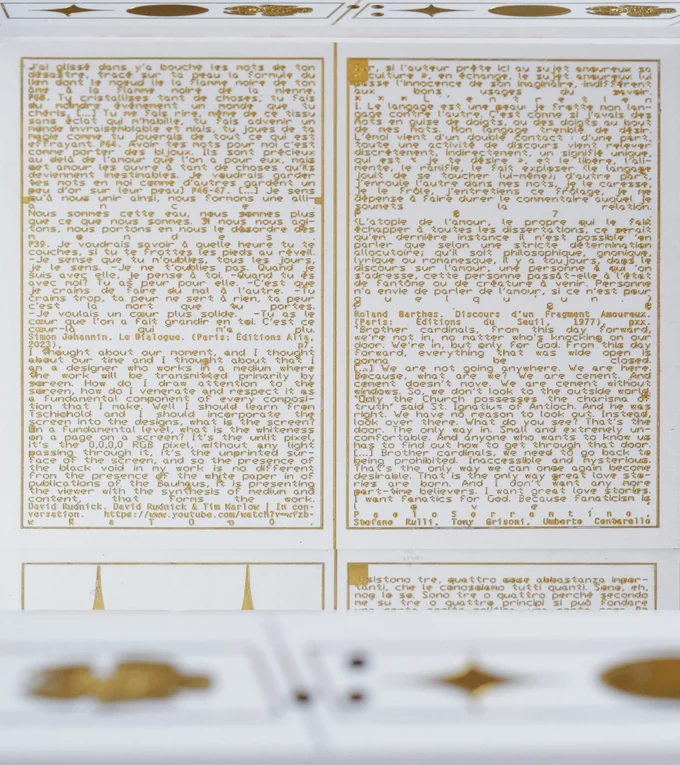 J'ai glissé dans y'a bouche les mots de ton
désastre, tracé sur ta peau la formule du
lien dont le nœud lie la flamme noire de ton
âme à la flamme noire de la mienne.
P60. Tu cristallises tant de choses, tu fais
du moindre événement un monde que tu
chéris. [...] Tu me fais rire, même de ce tissu
sans éclat qui m'habille, tu fais advenir un
monde invraisemblable et niais, tu joues de ta
magie comme tu jouerais de tout ce qui est
effrayant. P64. Avoir tes mots pour moi c'est
comme porter des bijoux. Ils sont précieux
au delà de l'amour que l'on a pour eux, mais
cet amour les ouvre à tant de choses qu'ils
deviennent inestimables. Je voudrais garder
mes mots en moi comme d'autres gardent un
peu d'or sur leur peau] P46-47. [...] Je sens
qu'à nous unir ainsi, nous formons une alli-
n c e
Nous sommes cette eau, nous sommes plus
que ce que nous sommes. Si nous nous ai-
tons, nous portons en nous le désordre des
m o n d e s
P39. Je voudrais savoir à quelle heure tu te
couches, si tu te frottes les pieds au réveil.
-Je sense que tu n'oublies, tous les jours,
je le sens. -Je ne t'oublies pas. Quand je
suis avec elle, je pense à toi. -Quand tu es
avec moi? Tu as peur pour elle. -C'est que
je crains de faire du mal à l'autre. -Tu
crains trop, ta peur ne sert à rien, ta peur
C'est la mort que tu portes.
-Je voulais un cœur plus solide. -Tu as le
cœur que l'on a fait grandir en toi. C'est ce
cœur-là qui m'a plu.
Simon Johannin. Le Dialogue. (Paris: Éditions Allia,
2023), p7
I thought about our moment, and I thought
about our time and I thought about that I
am a designer who works in a medium where
the work will be transmitted primarily by
screen. How do I draw attention to the
screen, how do I venerate and respect it as
a fundamental component of every composi-
tion that I make. Well I should learn from
Tschichold and I should incorporate the
screen into the designs, what is the screen?
On a fundamental level, what is the whiteness
on a page on a screen? It's the unlit pixel,
it's the 0,0,0 RGB pixel, without any light
passing through it, it's the unprinted sur-
face of the screen, and so the presence of
the black void in my work is no different
from the presence of the white paper in of
publications of the Bauhaus, it is presenting
the viewer with the synthesis of medium and
content, that forms the work.
David Rudnick. David Rudnick & Tim Marlow | In con-
versation. https://www.youtube.com/watch?v=wfzb-
w R a T O o O
ar, si l'auteur prête ici au sujet amoureux sa
culture », en échange, le sujet amoureux lui
passe l'innocence de son imaginaire, indifférent
aux bons usages du savoir.
1. Le langage est une peau: je frotte mon lan-
gage contre l'autre. C'est comme si j'avais des
mots en guise de doigts, ou des doigts au bout
de mes mots. Mon langage tremble de désir.
L'émoi vient d'un double contact : d'une part,
toute une activité de discours vient relever
discrètement, indirectement, un signifié unique,
qui est « je te désire », et le libère, l'ali-
mente, le ramifie, le fait exploser (le langage
jouit de se toucher lui-même); d'autre part,
j'enroule l'autre dans mes mots, je le caresse,
je le frôle, j'entretiens ce frôlage, je me
dépense à faire durer le commentaire auquel je
soumets la relation.
8 7
(L'atopie de l'amour, le propre qui le fait
échapper à toutes les dissertations, ce serait
qu'en dernière instance il n'est possible d'en
parler que selon une stricte détermination
allocutoire; qu'il soit philosophique, gnomique,
lyrique ou romanesque, il y a toujours, dans le
discours sur l'amour, une personne à qui l'on
s'adresse, cette personne passât-elle à l'état
de fantôme ou de créature à venir. Personne
n'a envie de parler de l'amour, si ce n'est pour
q u e l q u ' u n .
Roland Barthes. Discours d'un Fragment Amoureux.
(Paris: Éditions du Seuil, 1977), pxx.
"Brother cardinals, from this day forward,
we're not in, no matter who's knocking on our
door. We're in, but only for God. From this day
forward, everything that was wide open is
gonna be closed.
[...] We are not going anywhere. We are here.
Because, what are we? We are cement. And
cement doesn't move. We are cement without
windows. So, we don't look to the outside world.
"Only the Church possesses the charisma of
truth" said St. Ignatius of Antioch. And he was
right. We have no reason to look out. Instead,
look over there. What do you see? That's the
door. The only way in. Small and extremely un-
comfortable. And anyone who wants to know us
has to find out how to get through that door.
[...] Brother cardinals, we need to go back to
being prohibited. Inaccessible and mysterious.
That's the only way we can once again become
desirable. That is the only way great love sto-
ries are born. And I don't want any more
part-time believers. I want great love stories.
I want fanatics for God. Because fanatism is
l o v e
P a o l o S o r r e n t i n o ,
Stefano Rulli, Tony Grisoni, Umberto Contarello
Esistono tre, quattro cose abbastanza impor-
tanti, che le conosciamo tutti quanti. Sono, eh,
non lo so. Sono tre o quattro perchè secondo
me su tre o quattro principi si può fondare